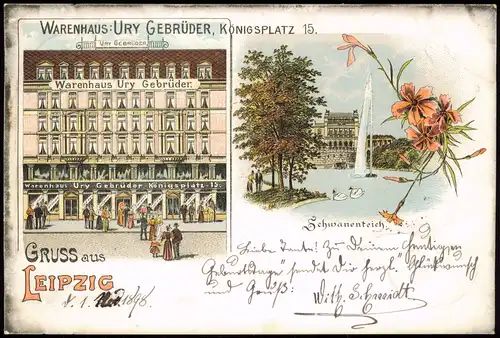 WARENHAUS: URY GEBRÜDER, KÖNIGSPLATZ 15.
URY GEBRÜDER
Warenhaus Ury Gebrüder.
Warenhaus Ury Gebrüder. Königsplatz 15.
Schwanenteich
GRUSS aus
LEIPZIG
d. 1. 1898.
Liebe Tante! Zu Deinem heutigen
Geburtstage sendet die herzl. Glückwunsch
und Gruß: With. Schmidt